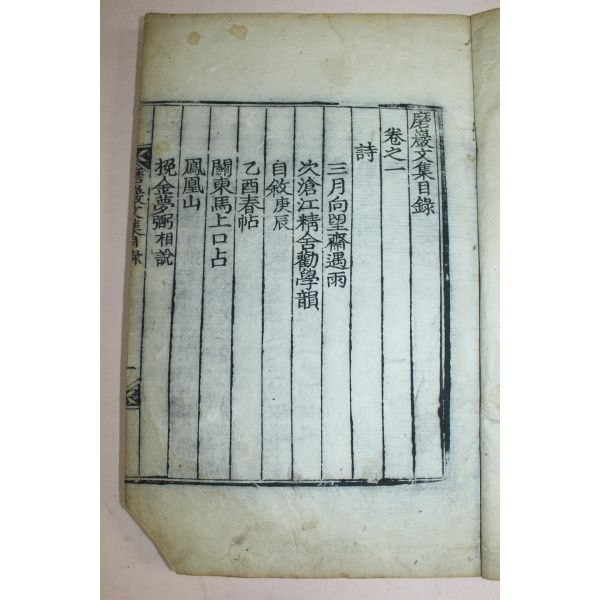 磨巖文集目錄
卷之一
詩
三月向望齋遇雨
次滄江精舍勸學韻
自敘庚辰
乙酉春帖
關東馬上口占
鳳凰山
挽金夢弼相說
磨巖文集目錄